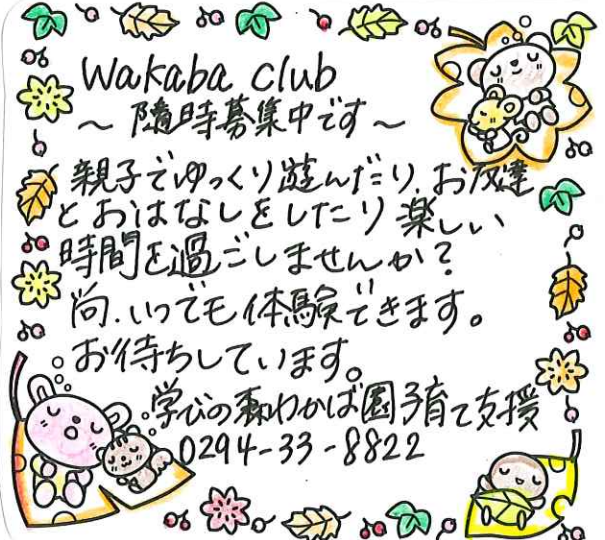 Wakaba club
～ 随時募集中です ～
親子でゆっくり遊んだり、お友達
とおはなしをしたり楽しい
時間を過ごしませんか？
尚、いつでも体験できます。
お待ちしています。
学びの森わかば園子育て支援
0294-33-8822